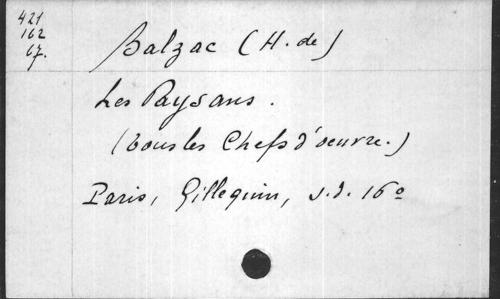 421
162
67.
Balzac (H. de)
Les Paysans.
(Tous les Chefs d'oeuvre.)
Paris, Gillequin, s.d. 16º